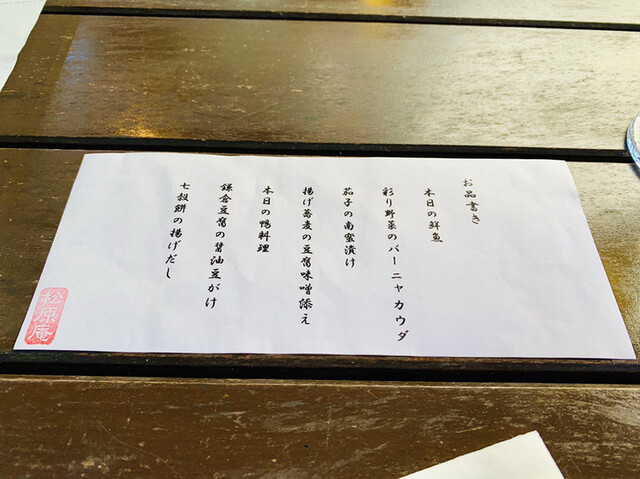 お品書き
本日の鮮魚
彩り野菜のバーニャカウダ
茄子の南蛮漬け
揚げ蕎麦の豆腐味噌添え
本日の鴨料理
鎌倉豆腐の醤油豆がけ
七穀餅の揚げだし
松原庵